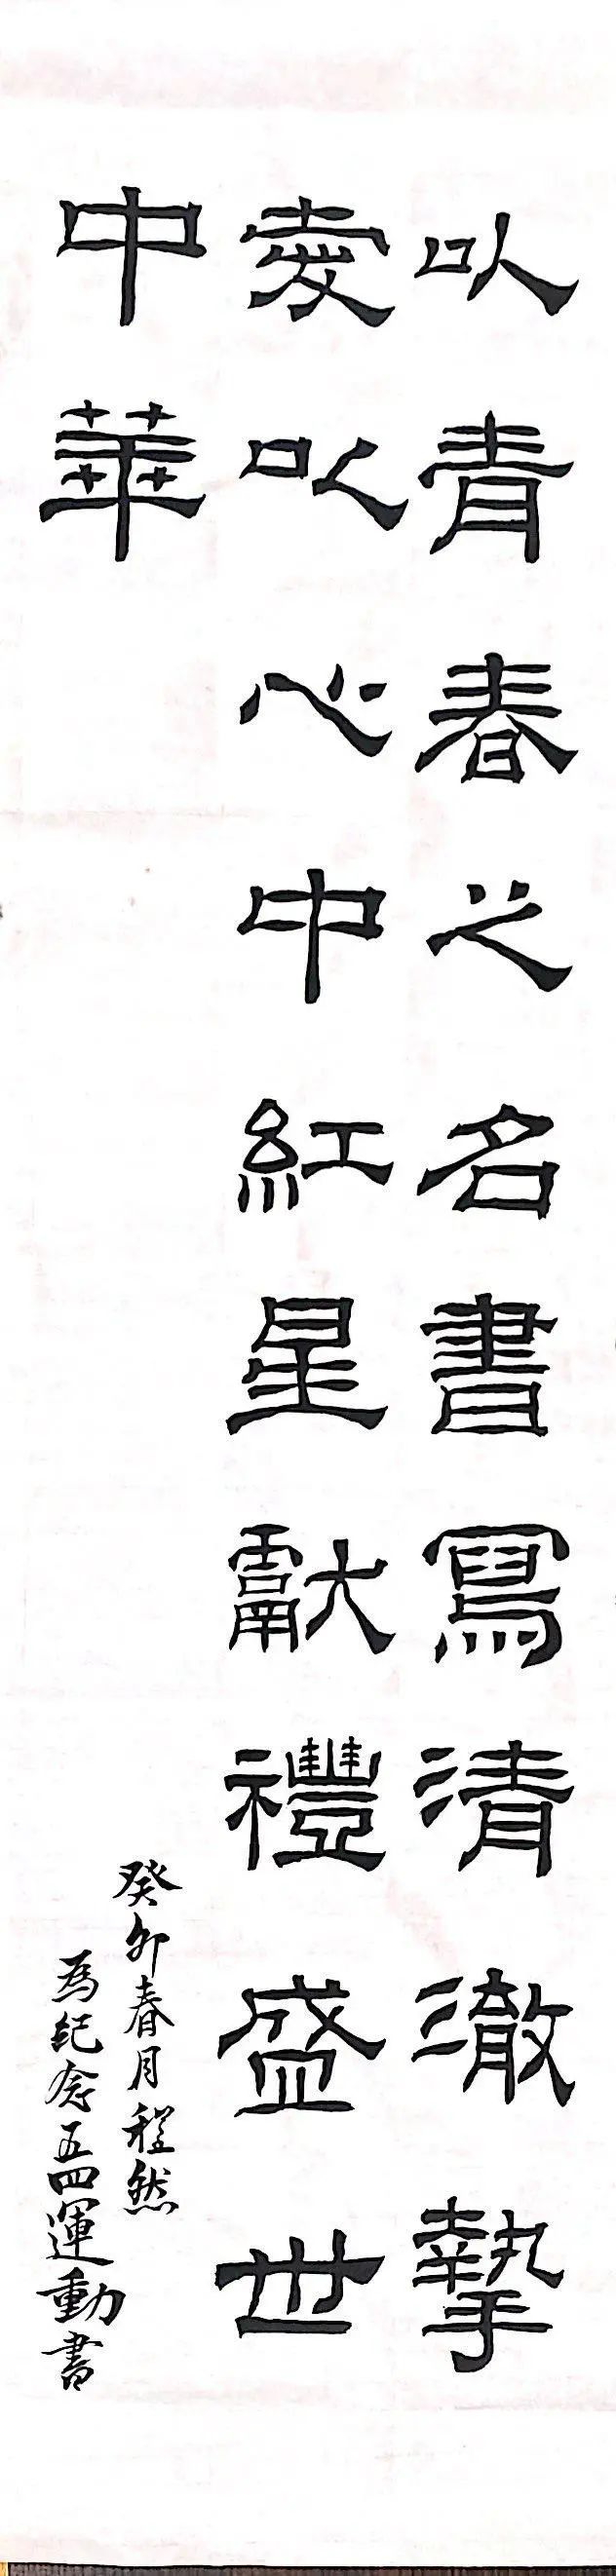 以青春之名書寫清澈摯
愛以心中紅星獻禮盛世
中華
癸卯春月程然
為紀念五四運動書